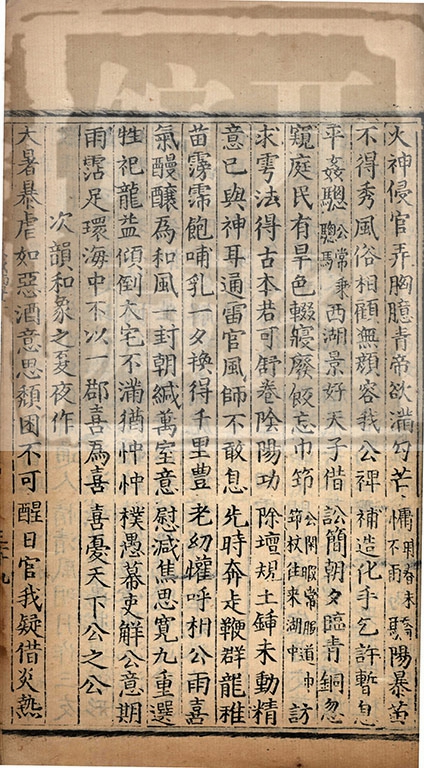 火神侵官弄胸臆青帝欲滿勾芒懦用春末不雨驕陽暴黃
不得秀風俗相顧無顔容我公裨補造化手乞許暫息
平姦驄公常乘驄馬西湖景好天子借訟簡朝夕臨青銅忽
窺庭民有旱色輟寢廢飧忘巾筇公閑暇常服道巾筇杖往來湖中訪
求雩法得古本若可舒卷陰陽功除壇規土鍾未動精
意已與神耳通雷官風師不敢息先時奔走鞭群龍稚
苗霶霈飽哺乳一夕換得千里豐老幼懽呼相公雨喜
氣醲釀爲和風一封朝緘萬室意慰减焦思寛九重選
牲祀龍益傾倒大宅不滿猶忡忡樸愚幕吏解公意期
雨霑足環海中不以一郡喜爲喜喜憂天下公之公
次韻和象之夏夜作
大暑暴虐如惡酒意思頽困不可醒日官我疑借炎熱